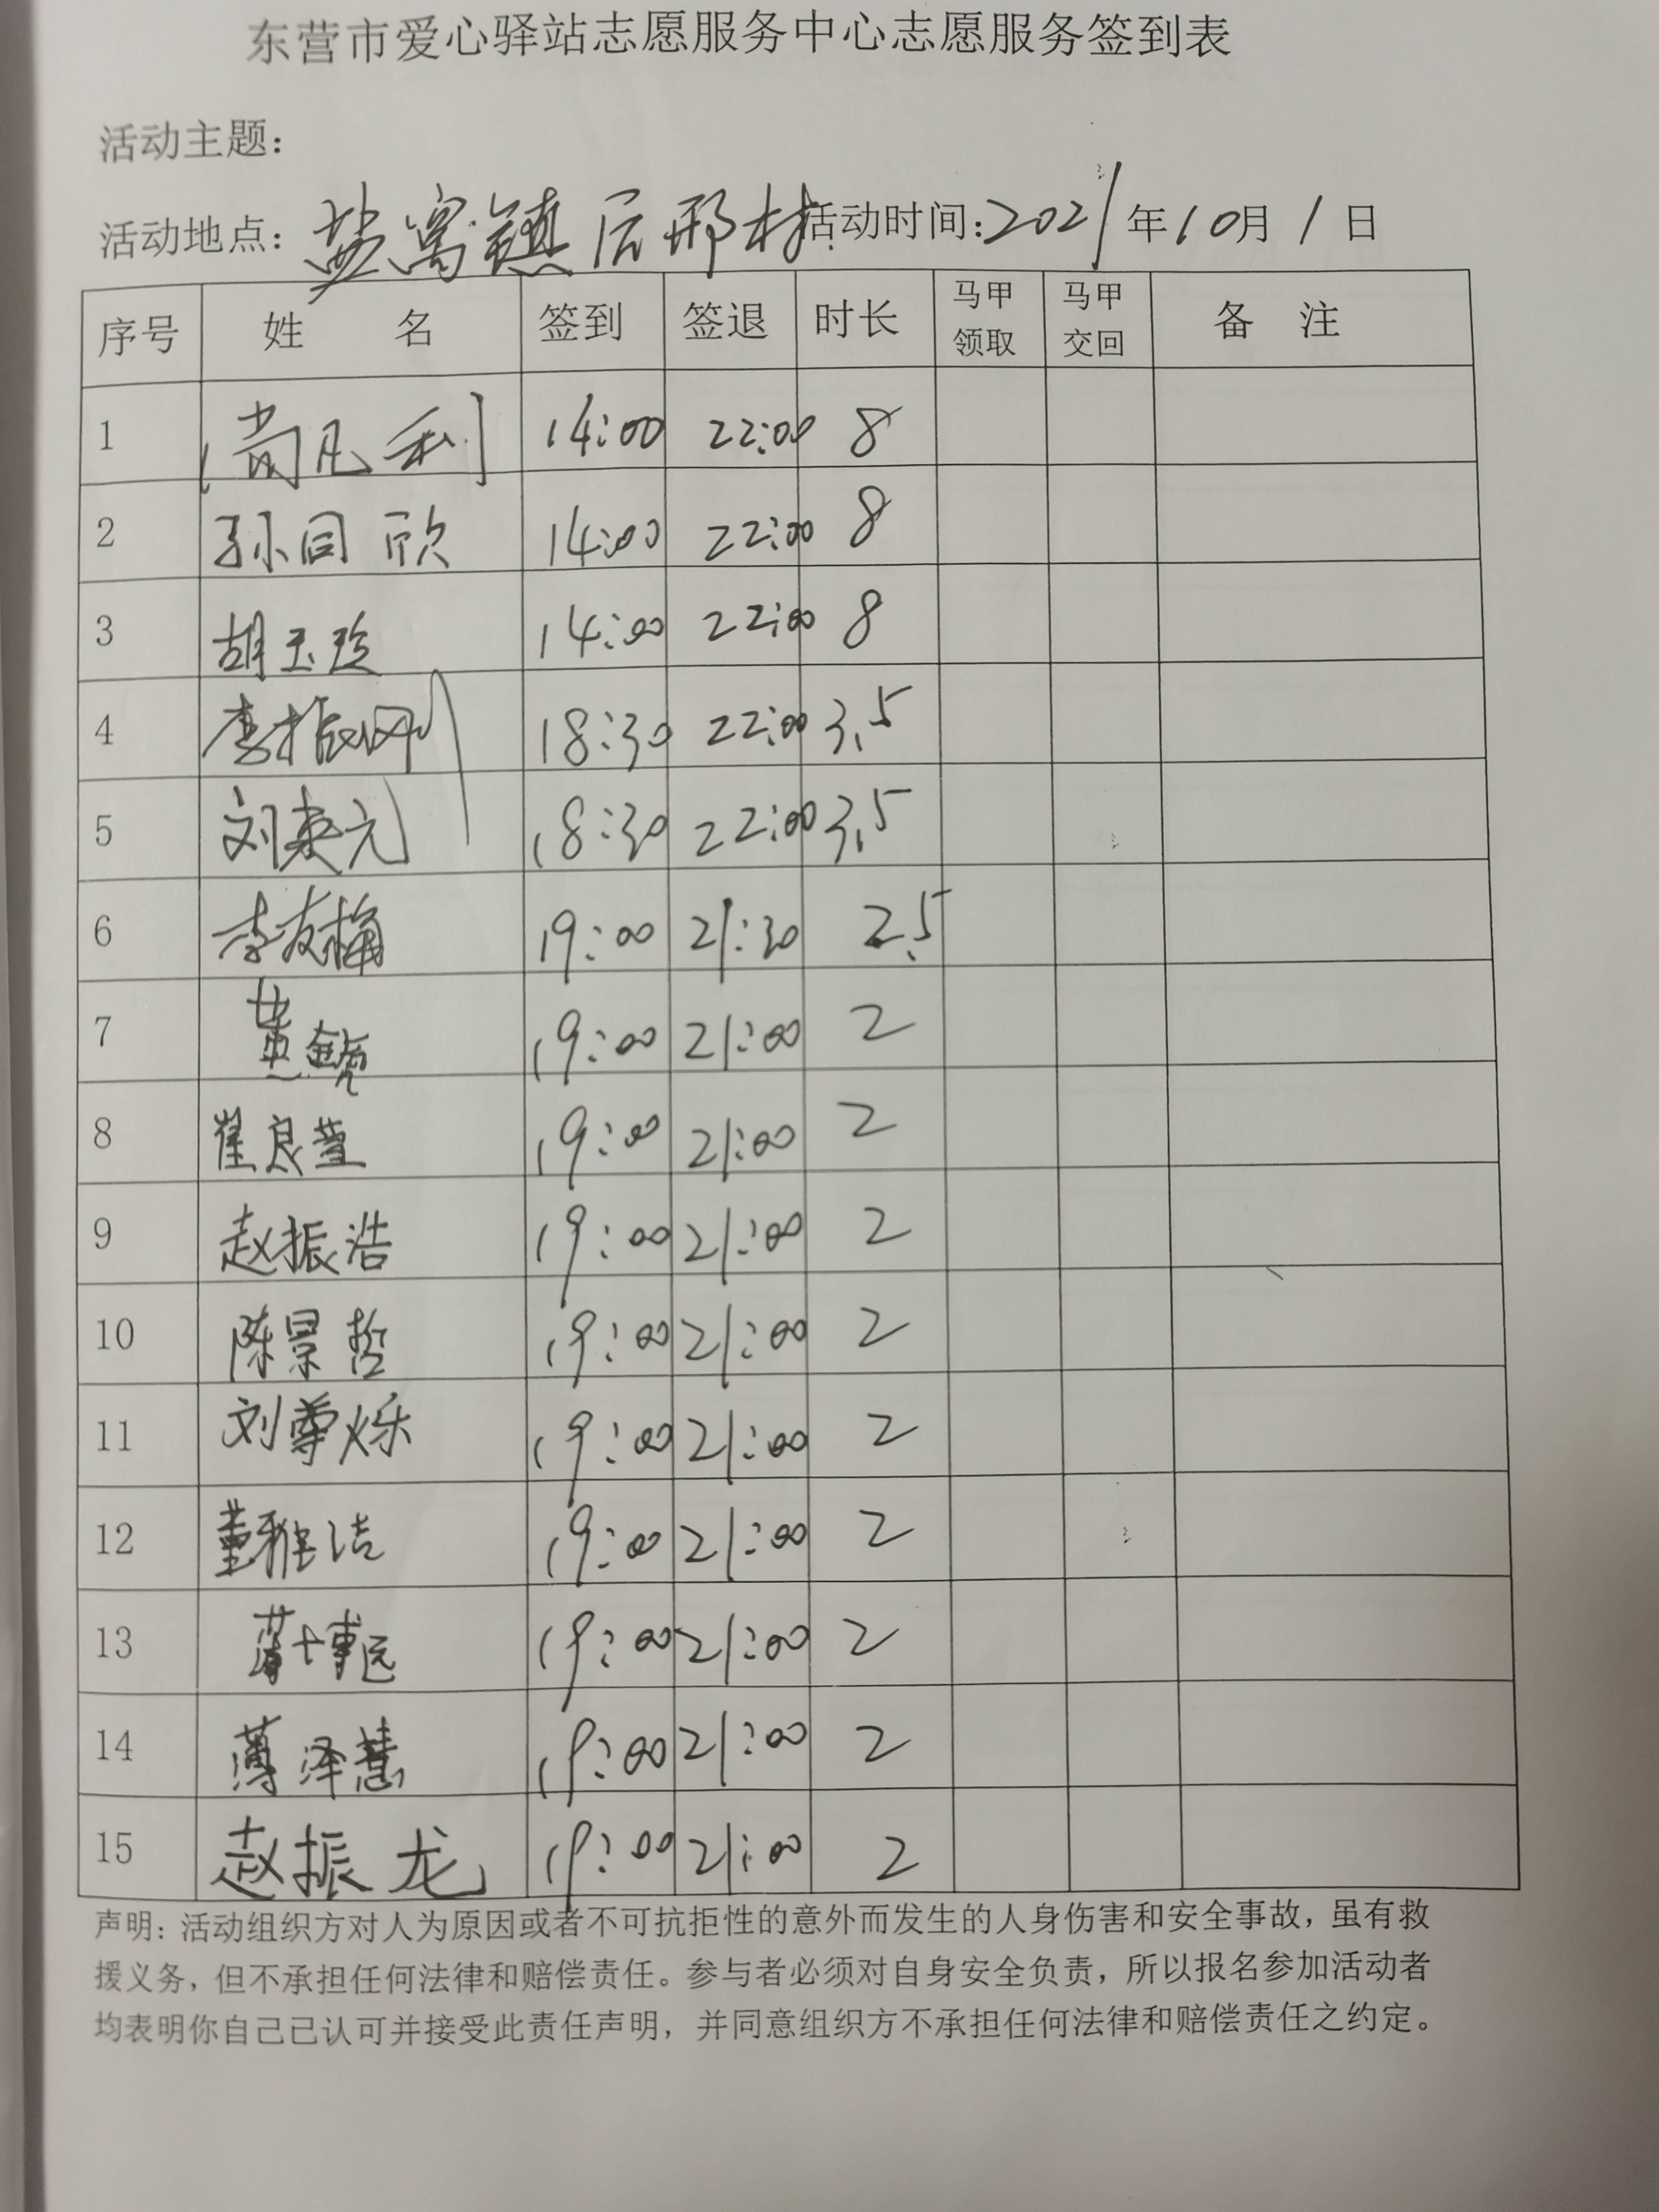 东营市爱心驿站志愿服务中心志愿服务签到表
活动主题:
活动地点: 盐窝镇后邢村 活动时间:2021年10月1日
序号 姓 名 签到 签退 时长 马甲领取 马甲交回 备 注
1 尚凡利 14:00 22:00 8
2 孙同欣 14:00 22:00 8
3 胡玉珍 14:00 22:00 8
4 李振刚 18:30 22:00 3.5
5 刘英元 18:30 22:00 3.5
6 李友梅 19:00 21:30 2.5
7 19:00 21:00 2
8 崔良萱 19:00 21:00 2
9 赵振浩 19:00 21:00 2
10 陈景哲 19:00 21:00 2
11 刘尊烁 19:00 21:00 2
12 董雅洁 19:00 21:00 2
13 19:00 21:00 2
14 薄泽慧 19:00 21:00 2
15 赵振龙 19:00 21:00 2
声明:活动组织方对人为原因或者不可抗拒性的意外而发生的人身伤害和安全事故,虽有救
援义务,但不承担任何法律和赔偿责任。参与者必须对自身安全负责,所以报名参加活动者
均表明你自己已认可并接受此责任声明,并同意组织方不承担任何法律和赔偿责任之约定。